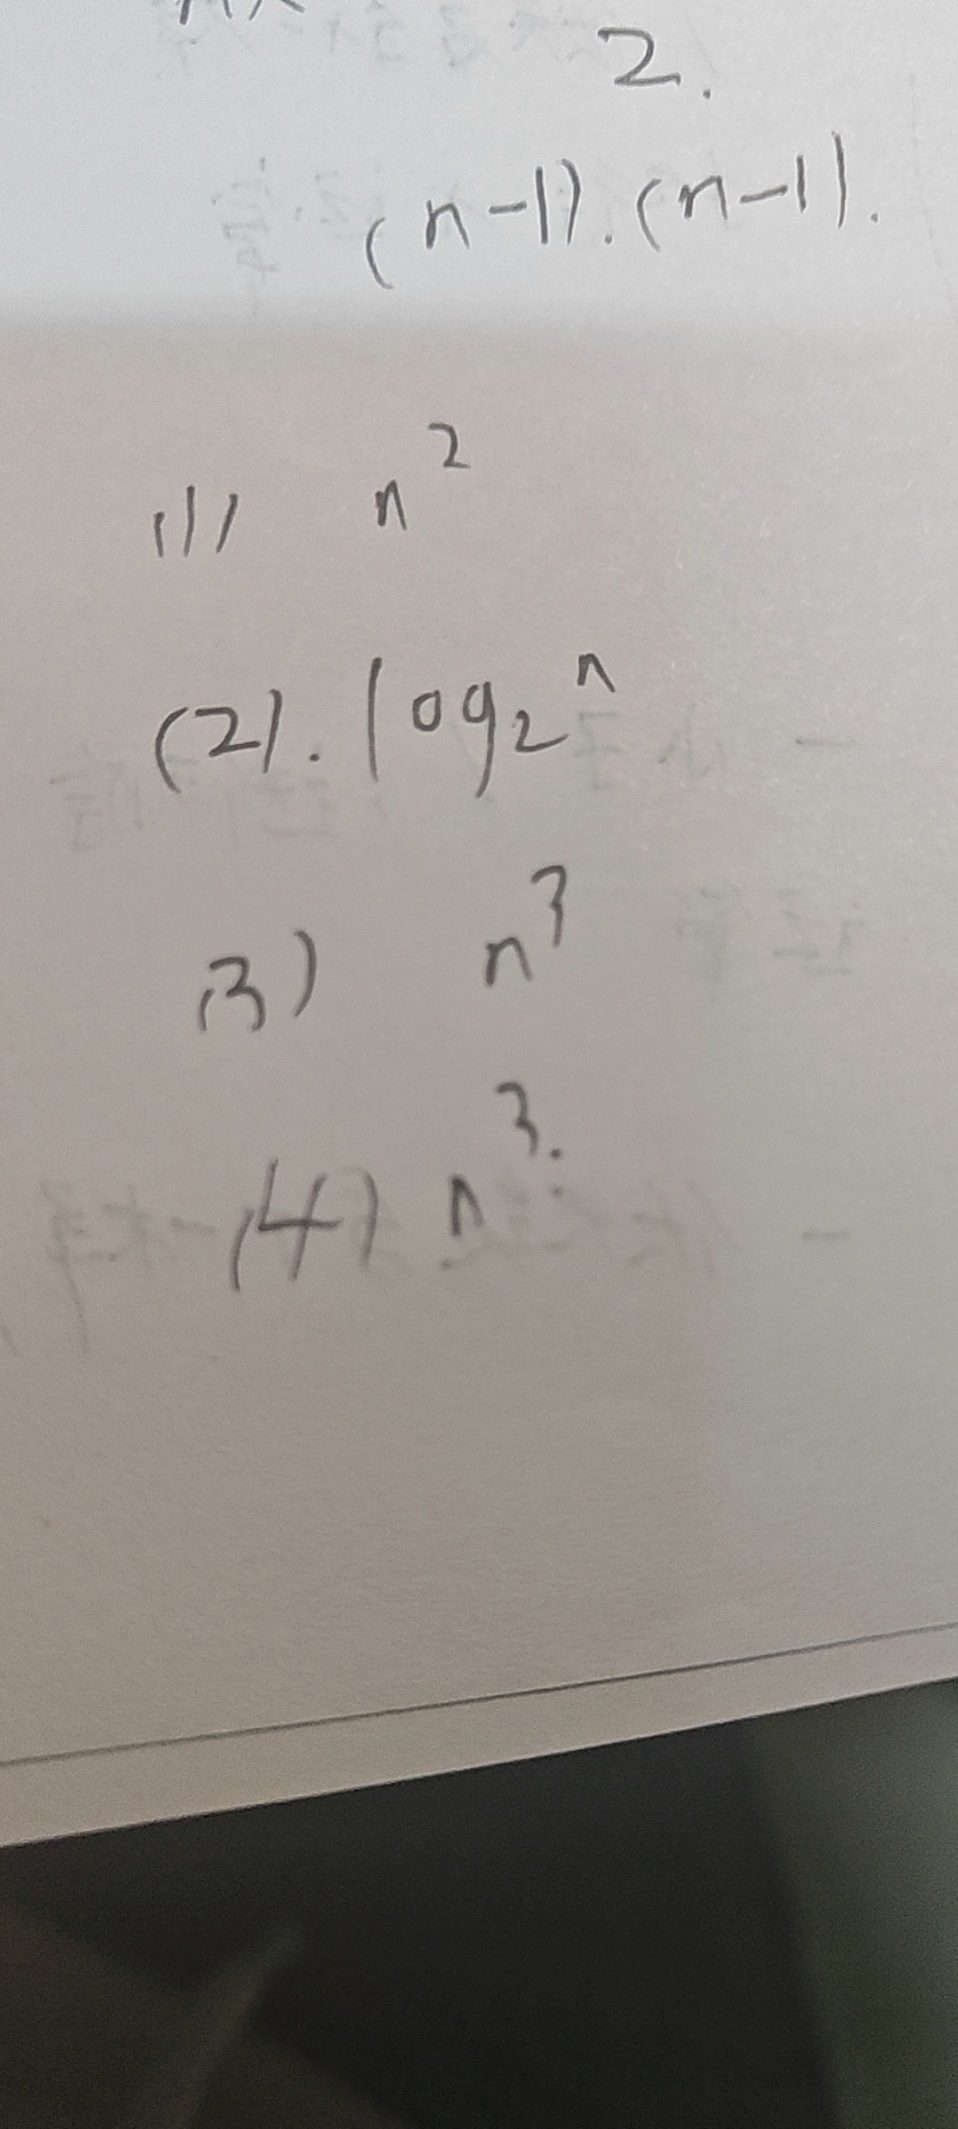 2.
(n-1).(n-1).
(1) n²
(2). log₂ⁿ
(3) n³
(4) n³.